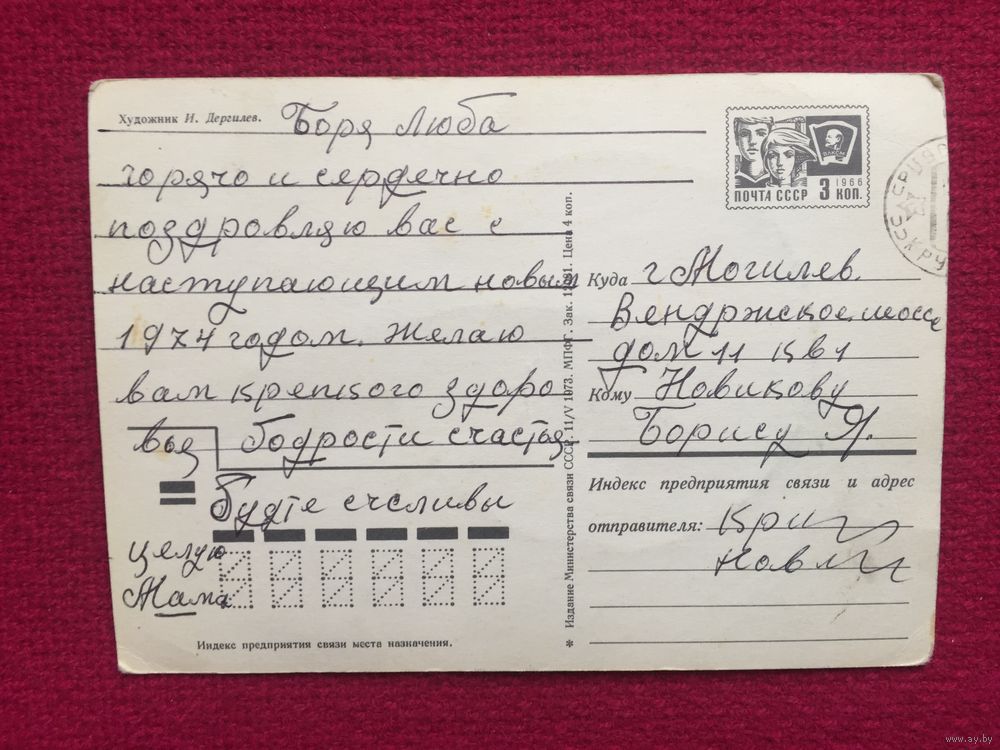 Художник И. Дергилев.
Боря Люба
горячо и сердечно
поздровляю вас с
наступающим новым
1974 годом. Желаю
вам крепкого здоро
вья бодрости счастья
будте счсливы
целую
Мама
Индекс предприятия связи места назначения.
Издание Министерства связи СССР. 11/V 1973. МПФГ. Зак. Цена 4 коп.
ПОЧТА СССР 3 КОП.
1966
ВЛКСМ
Куда г Могилев.
Вендржское шоссе
дом 11 кв 1
Кому Новикову
Борису Я.
Индекс предприятия связи и адрес
отправителя:
www.ay.by